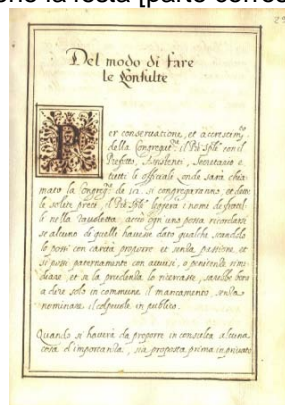 Del modo di fare
le Consulte
Per conservatione, et accrescim.to
della Congregat.ne il Pre Spñle con il
Prefetto, Assistenti, Secretario o
tutti le officiale onde sarà chia-
mato la Congreg.ne de sei si congregaranno et dette
le solite preci, il Pre Spñle leggera i nome de fratel-
li nella tavoletta, acciò ogn'uno possa ricordarsi
se alcuno di quelli havesse dato qualche scandelo
lo possi con carità proporre et senza passione, et
si possi paternamente con avvisi, o penitenze rime-
diare, et se la prudenza lo ricercasse, sarebbe bene
a dire solo in commune il mancamento, senza
nominare il colpevole in publico.
Quando si haverà da proporre in consulta alcuna
cosa d'importanza, sia proposta prima in privato